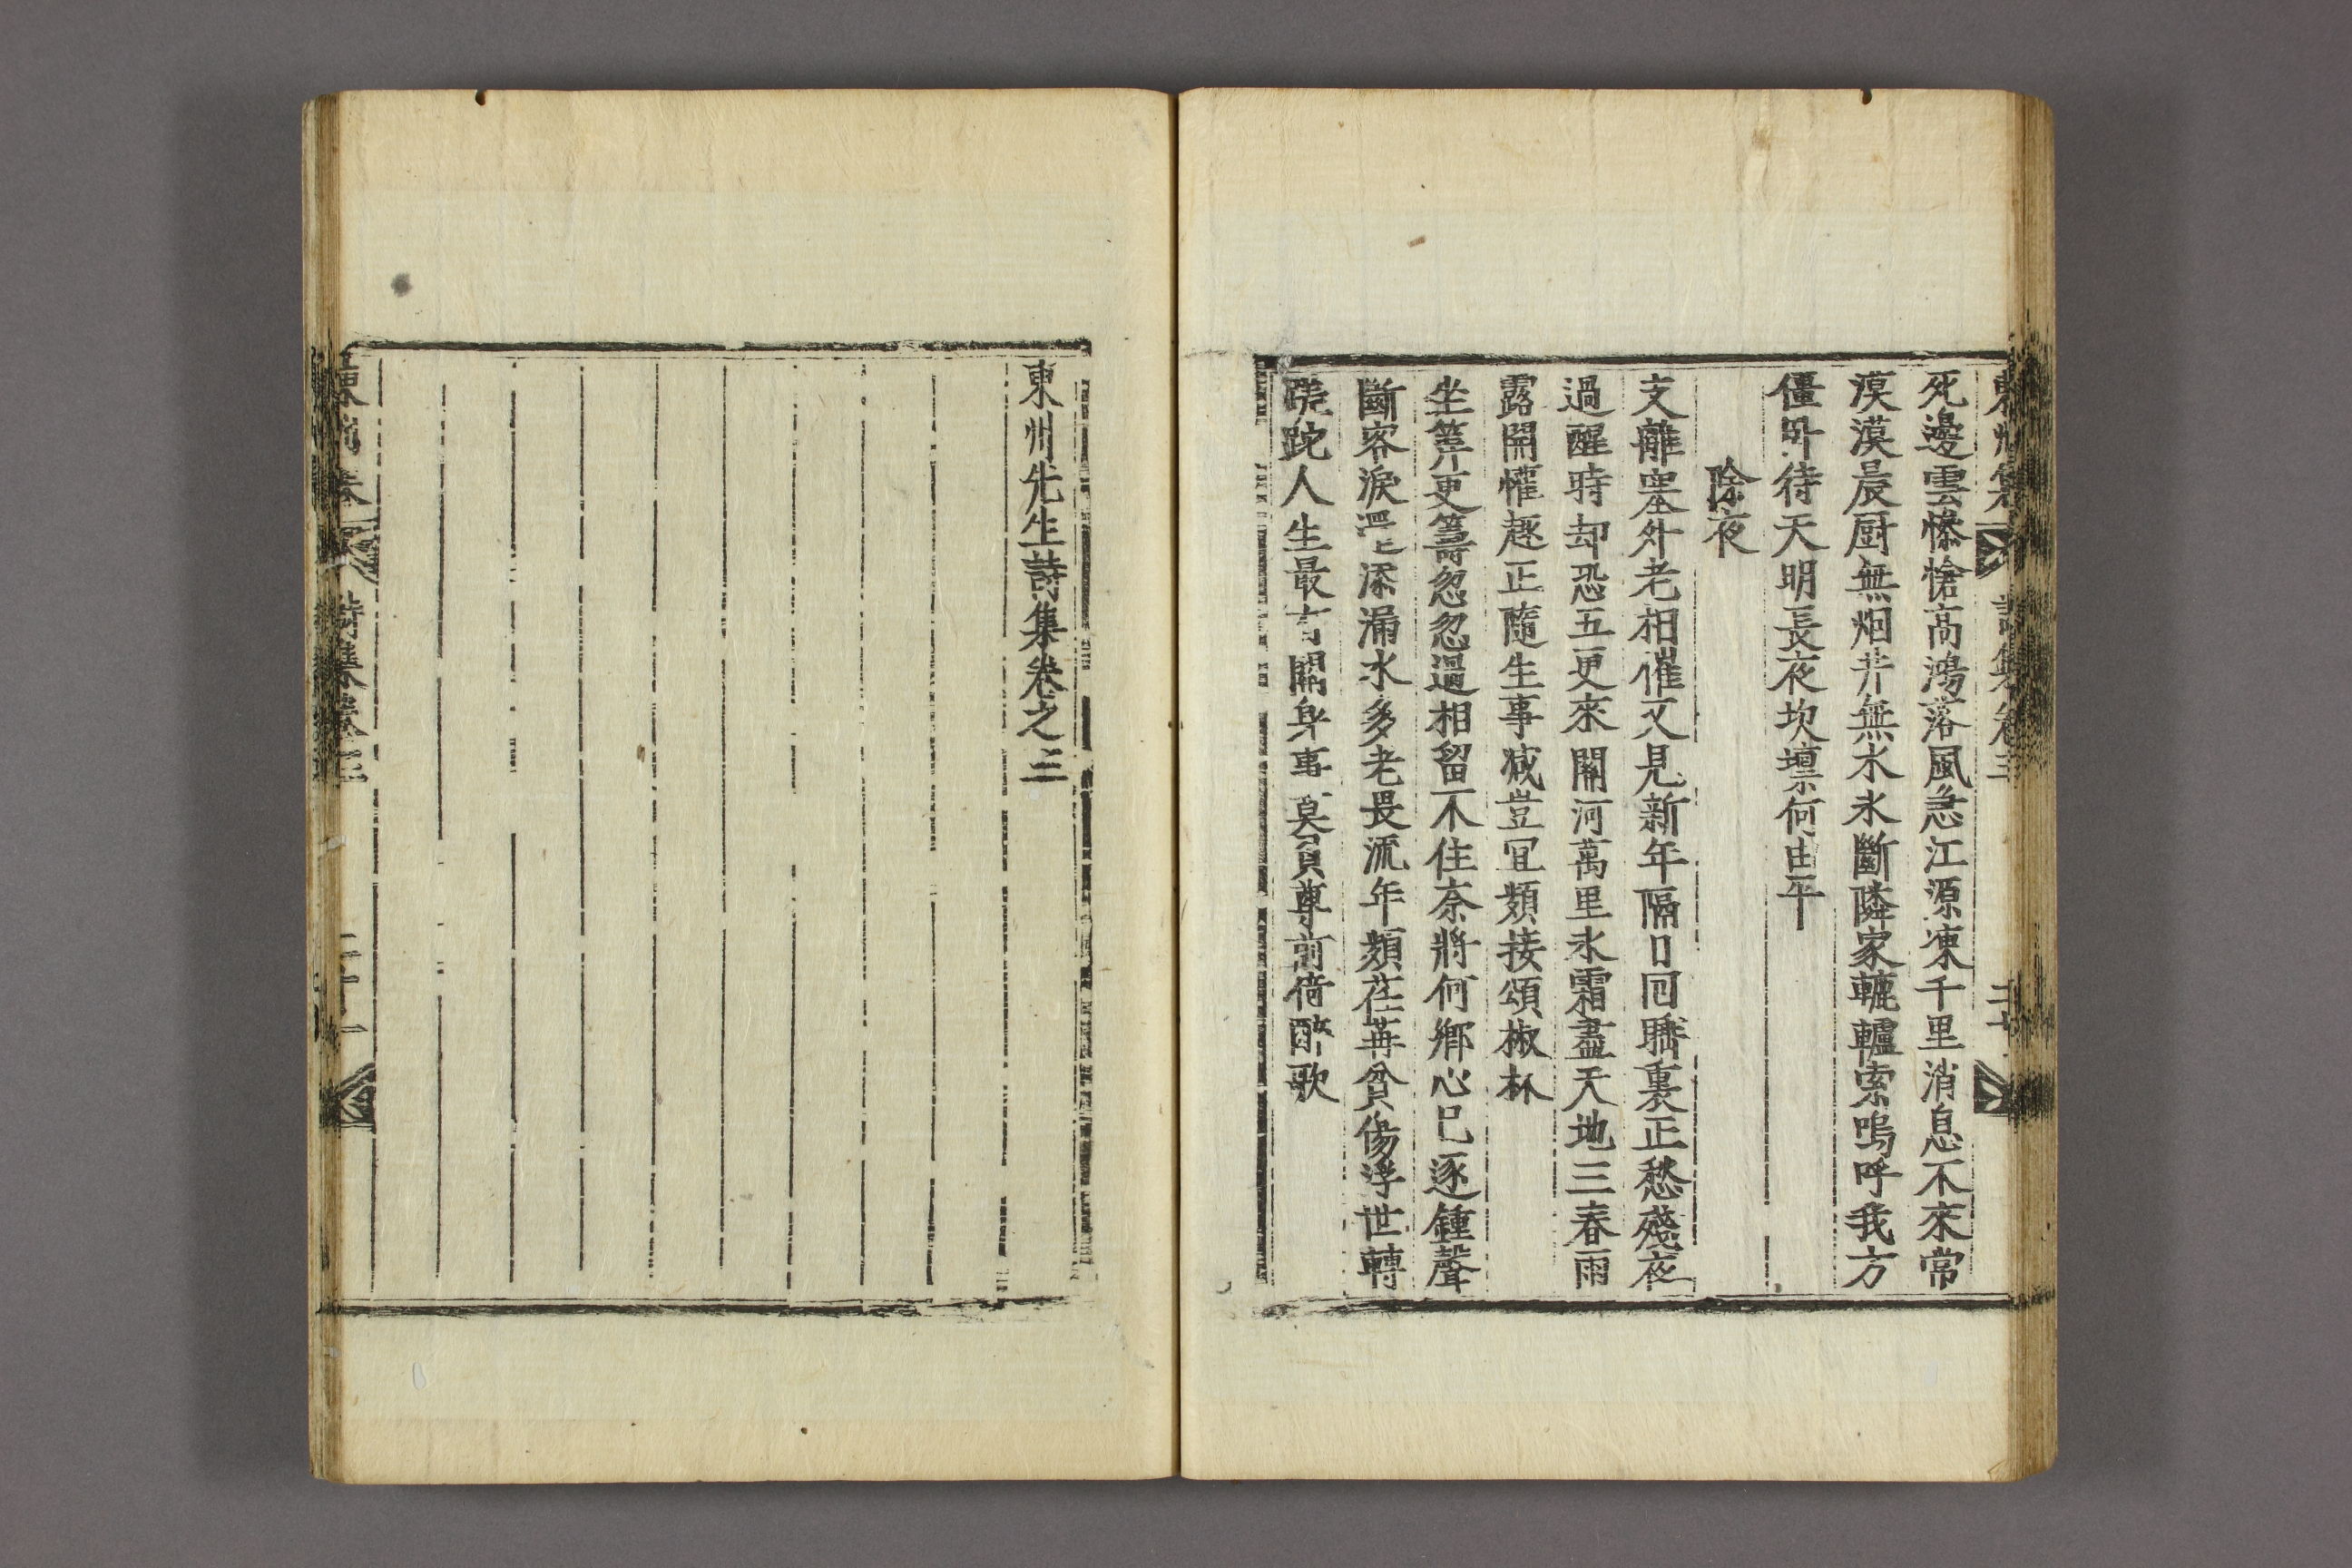 死邊雲慘愴高鴻落風急江源凍千里消息不來常
漠漠晨厨無烟井無水氷斷隣家轆轤索嗚呼我方
僵卧待天明長夜坎壈何由平
除夜
支離塞外老相催又見新年隔日回職裏正愁殘夜
過醒時却恐五更來關河萬里氷霜盡天地三春雨
露開懽趂正隨生事減豈宜頻接頌椒杯
坐筭更籌忽忽過相留不住奈將何鄕心已逐鍾聲
斷客淚添漏水多老畏流年頻荏苒貧傷浮世轉
蹉跎人生最關身事莫負尊前倚醉歌
東州先生詩集卷之三